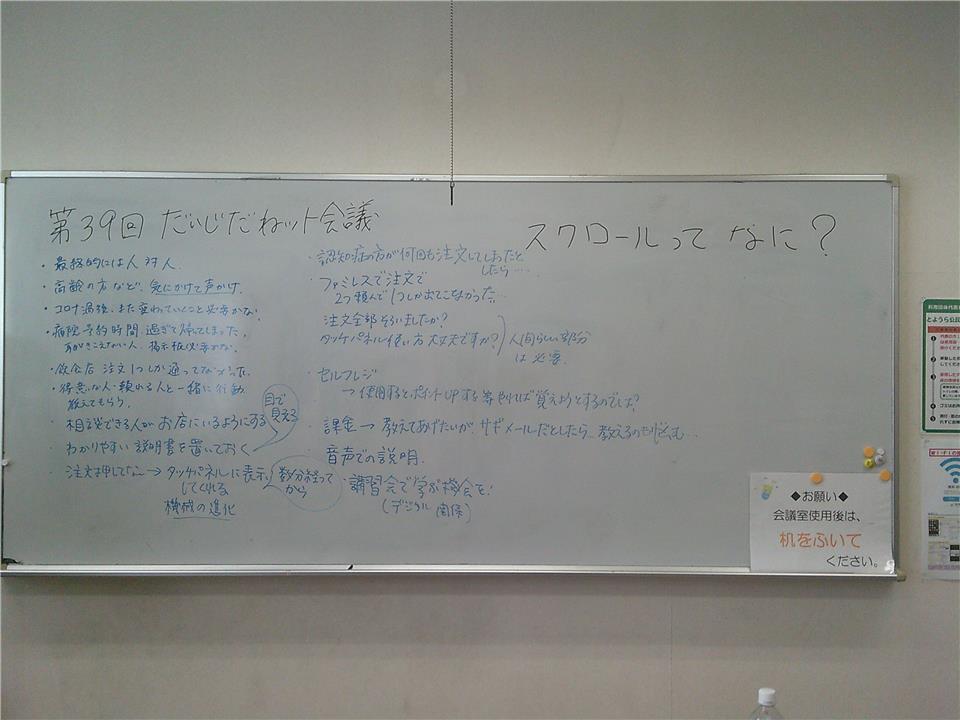 第39回 だいじだねット会議
スクロールって なに？
・最終的には人対人
・高齢の方など、気にかけて声かけ
・コロナ過後、また変わっていくこと
・病院 予約時間 過ぎて帰ってしまった。
耳がきこえない人、掲示板必要かな。
・飲食店 注文1つしか通ってなかった。
・得意な人・頼れる人と一緒に行動
教えてもらう
・相談できる人がお店にいるようにする
・わかりやすい説明書を置いておく
目で
見える
・注文押してない→タッチパネルに表示
してくれる
機械の進化
数分経って
から
・認知症の方が何回も注文してしまったと
したら…
・ファミレスで注文で
2つ頼んで1つしか出てこなかった…
注文全部そろいましたか？
タッチパネル使い方大丈夫ですか？
人間らしい部分
は必要
・セルフレジ
→使用するとポイントUPする等やれば覚えようとするのでは？
・課金→教えてあげたいが、サギメールだとしたら…教えるのも
・音声での説明
・講習会で学ぶ機会を！
(デジタル関係)
◆お願い◆
会議室使用後は、
机をふいて
ください。